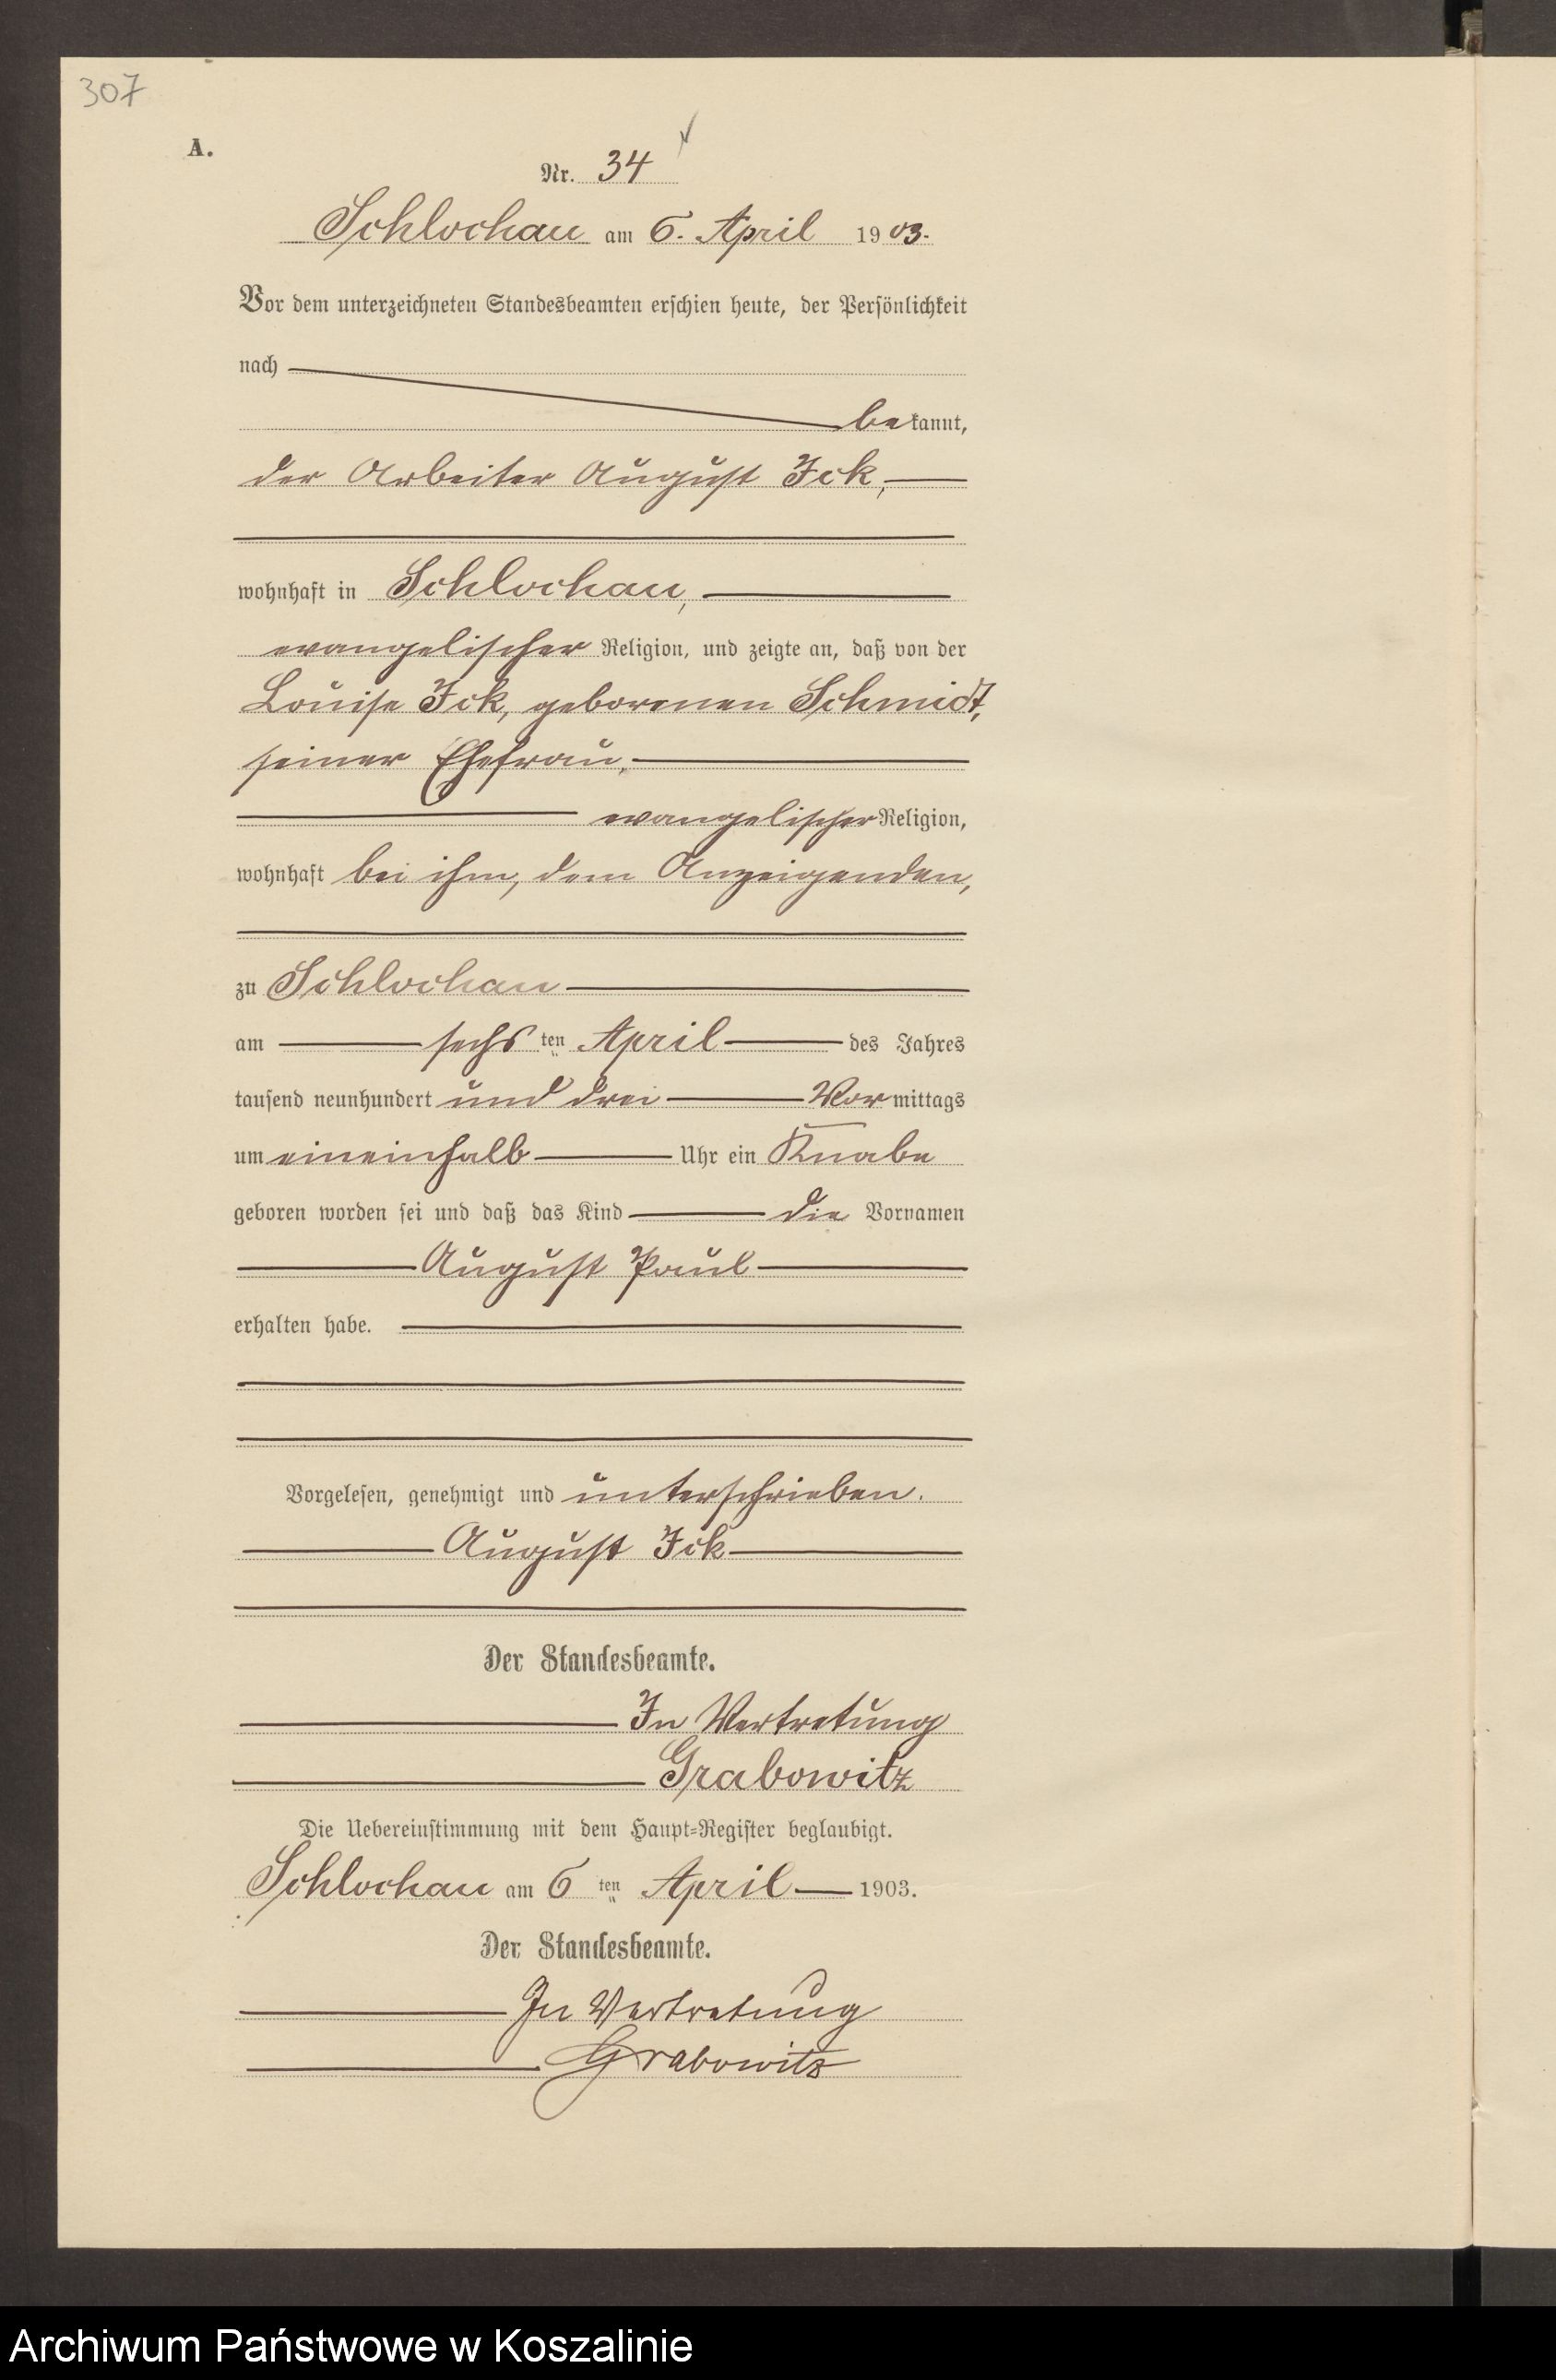 307
A.
Nr. 34
Schlochau am 6. April 1903.
Vor dem unterzeichneten Standesbeamten erschien heute, der Persönlichkeit
nach
bekannt,
der Arbeiter August Ick,
wohnhaft in Schlochau,
evangelischer Religion, und zeigte an, daß von der
Louise Ick, geborenen Schmidt,
seiner Ehefrau,
evangelischer Religion,
wohnhaft bei ihm, dem Anzeigenden,
zu Schlochau
am sechsten April des Jahres
tausend neunhundert und drei Vormittags
um eineinhalb Uhr ein Knabe
geboren worden sei und daß das Kind die Vornamen
August Paul
erhalten habe.
Vorgelesen, genehmigt und unterschrieben.
August Ick
Der Standesbeamte.
In Vertretung
Grabowitz
Die Uebereinstimmung mit dem Haupt-Register beglaubigt.
Schlochau am 6ten April 1903.
Der Standesbeamte.
In Vertretung
Grabowitz
Archiwum Państwowe w Koszalinie